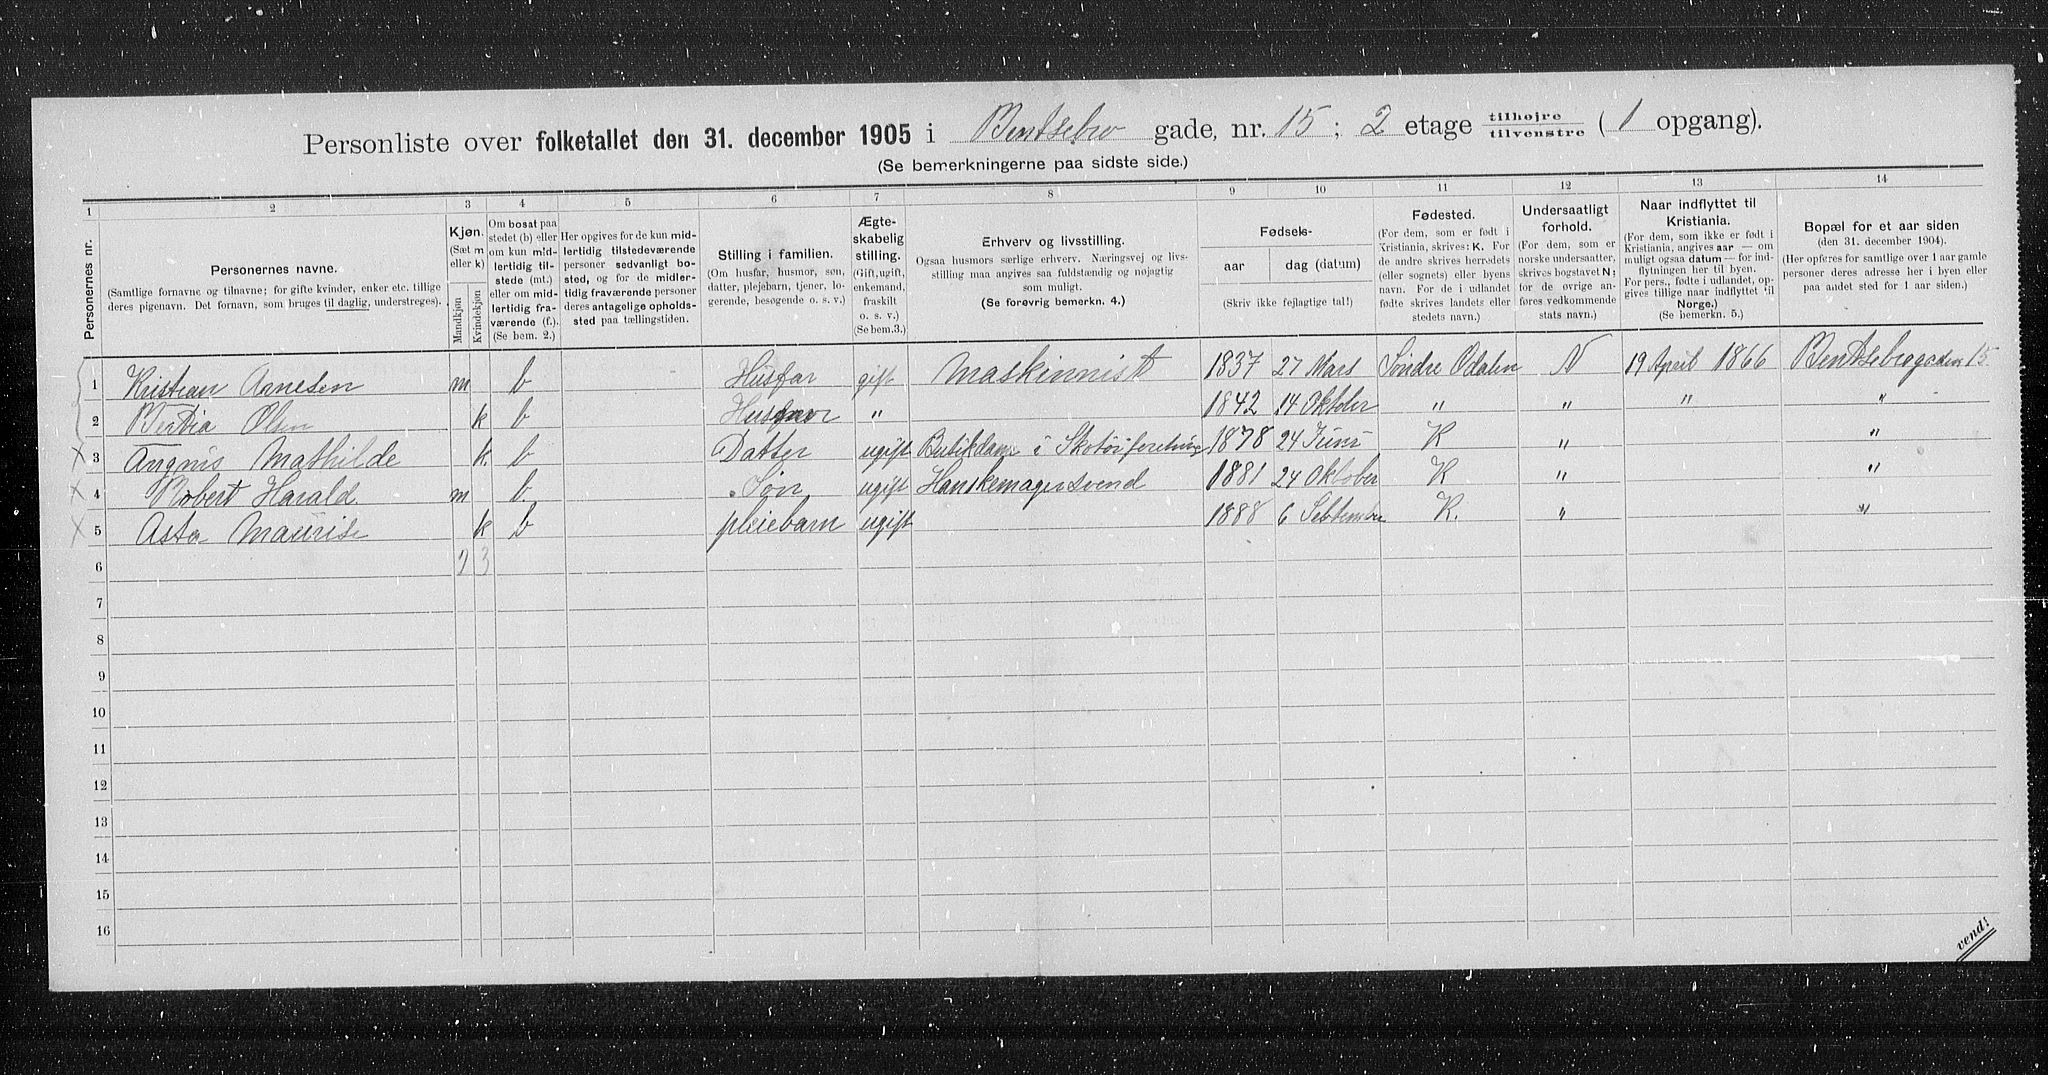 Personliste over folketallet den 31. december 1905 i Bentsebro gade, nr. 15; 2 etage tilhøjre tilvenstre (1 opgang).
(Se bemerkningerne paa sidste side.)
1 2 3 4 5 6 7 8 9 10 11 12 13 14
Personernes nr.
Personernes navne.
(Samtlige fornavne og tilnavne; for gifte kvinder, enker etc. tillige
deres pigenavn. Det fornavn, som bruges til daglig, understreges).
Kjøn.
(Sæt m
eller k)
Mandkjøn
Kvindekjøn
Om bosat paa
stedet (b) eller
om kun mid-
lertidig til-
stede (mt.)
eller om mid-
lertidig fra-
værende (f.).
(Se bem. 2.)
Her opgives for de kun mid-
lertidig tilstedeværende
personer sedvanlig bo-
sted, og for de midler-
tidig fraværende personer
deres antagelige opholds-
sted paa tællingstiden.
Stilling i familien.
(Om husfar, husmor, søn,
datter, plejebarn, tjener, lo-
gerende, besøgende o. s. v.)
Ægte-
skabelig
stilling.
(Gift, ugift,
enkemand,
fraskilt
o. s. v.)
(Se bem. 3.)
Erhverv og livsstilling.
Ogsaa husmors særlige erhverv. Næringsvej og livs-
stilling maa angives saa fuldstændig og nøjagtig
som muligt.
(Se forøvrig bemerkn. 4.)
Fødsels-
aar dag (datum)
(Skriv ikke fejlagtige tal!)
Fødested.
(For dem, som er født i
Kristiania, skrives: K. For
de andre skrives herredets
(eller sognets) eller byens
navn. For de i udlandet
fødte skrives landets eller
stedets navn.)
Undersaatligt
forhold.
(For dem, som er
norske undersaatter,
skrives bogstavet N;
for de øvrige an-
føres vedkommende
stats navn.)
Naar indflyttet til
Kristiania.
(For dem, som ikke er født i
Kristiania, angives aar — om
muligt ogsaa datum — for ind-
flytningen her til byen.
For pers., fødte i udlandet, op-
gives tillige naar indflyttet til
Norge.)
(Se bemerkn. 5.)
Bopæl for et aar siden
(den 31. december 1904).
(Her opføres for samtlige over 1 aar gamle
personer deres adresse her i byen eller
paa andet sted for 1 aar siden.)
1 Kristian Arnesen m b Husfar gift Maskinnist 1837 27 Mars Söndre Odalen N 19 April 1866 Bentsebrogaden 15
2 Bertia Olsen k b Husmor " 1842 14 Oktober " " " "
3 Angnis Mathilde k. b Datter ugift Butikdame i Skotöiforetning 1878 24 Juni K " "
4 Robert Harald m b. Sön ugift Hanskemagersvend 1881 24 Oktober K " "
5 Asta Maurise k b pleiebarn ugift 1888 6 September K. " "
6 2 3
7
8
9
10
11
12
13
14
15
16
vend!